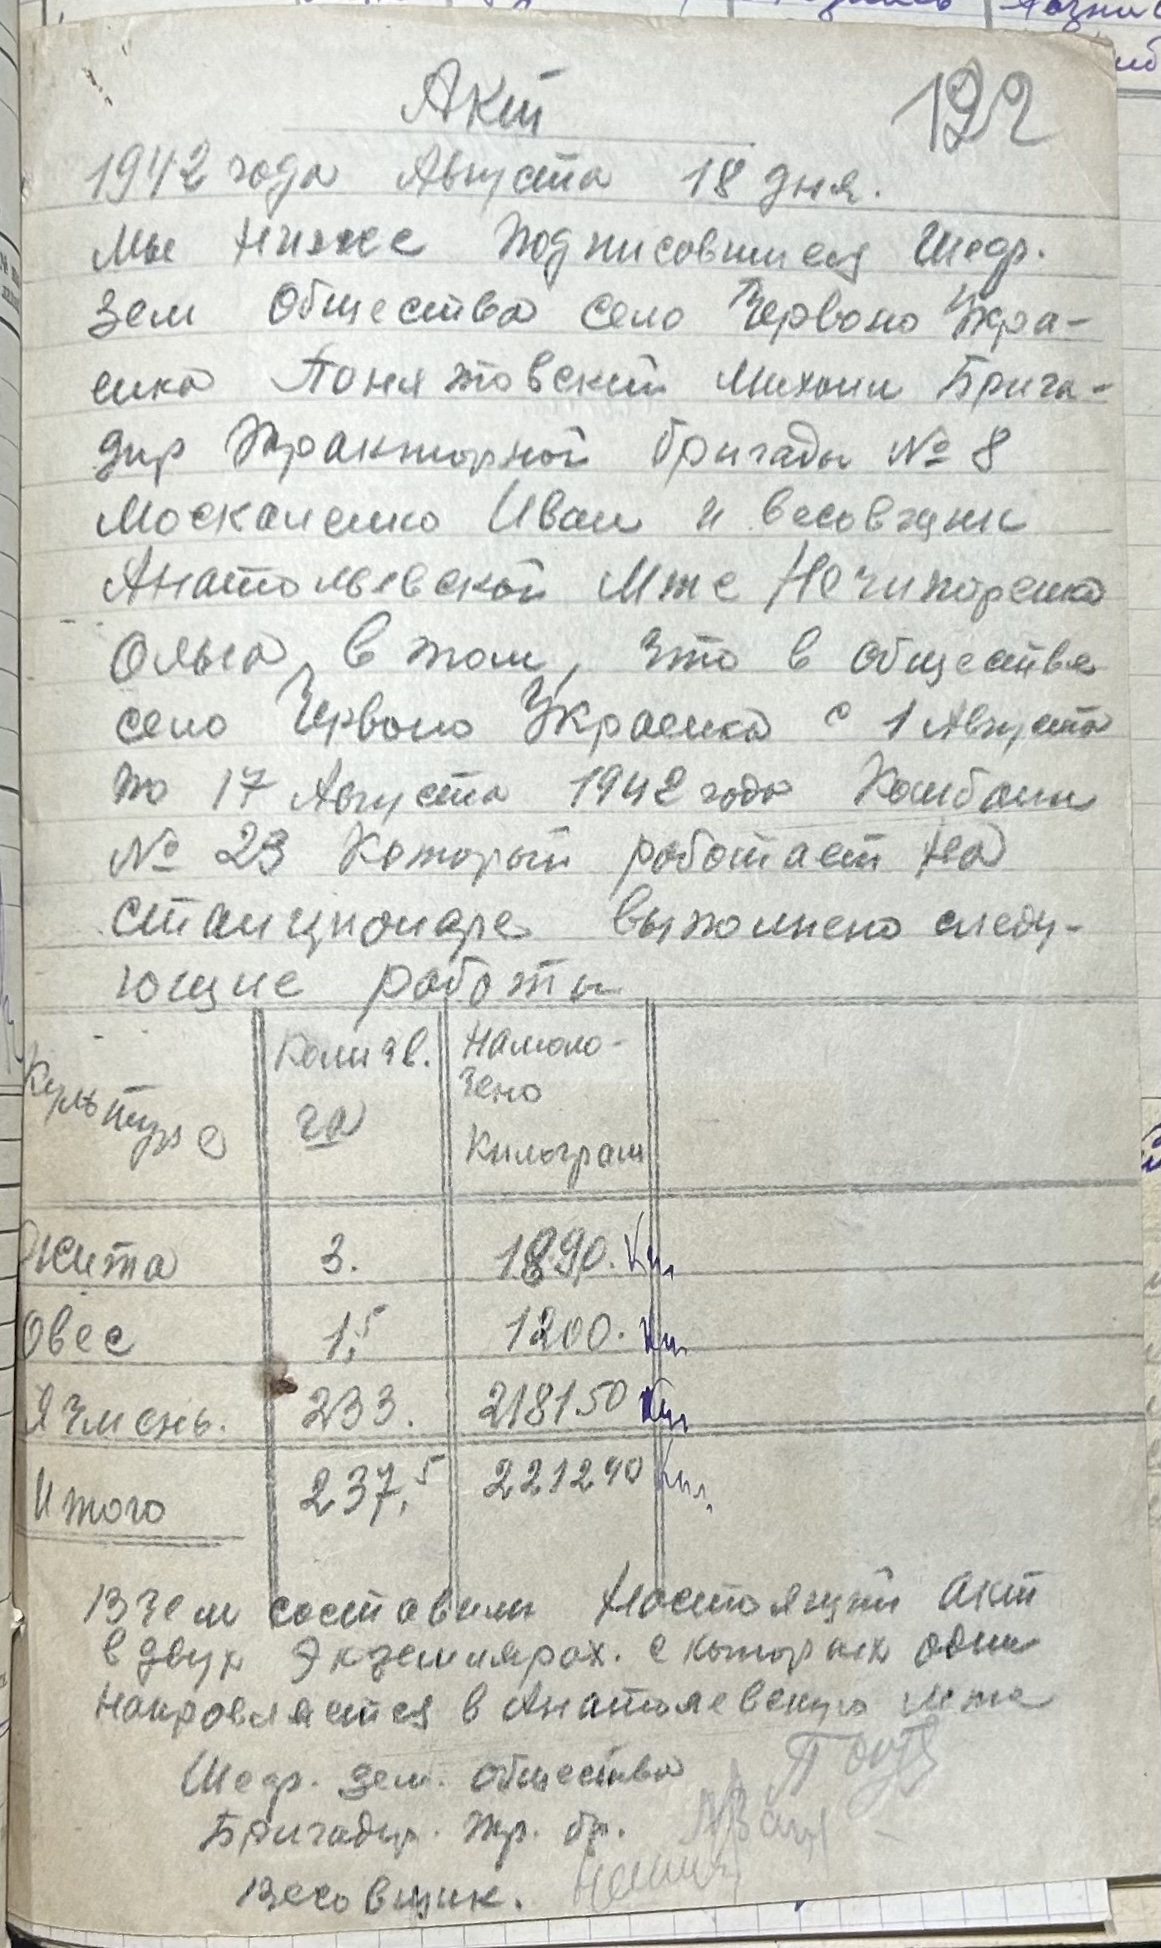 Акт
122
1942 года Августа 18 дня.
Мы ниже подписовшиеся Шефр.
зем Общества село Червоно Укра-
инка Понятовский Михаил Брига-
дир Тракторной бригады № 8
Москаленко Иван и весовщик
Анатольевской Мтс Нечипоренко
Ольга, в том, что в обществе
село Червоно Украенка с 1 Августа
по 17 Августа 1942 года Комбаин
№ 23 Который работает на
станционаре выполнено следу-
ющие работы
Культура
Количв.
га
Намоло-
чено
Килограм
Жита 3. 1890. Кил
Овес 1,5 1200. Кил
Ячмень. 233. 218150 Кил
Итого 237,5 221240 Кил.
В чем составили Настоящий акт
в двух экземплярах. с которых один
направляется в Анатолевскую мтс
Шефр. зем. общества
Бригадир. тр. бр.
Весовщик.